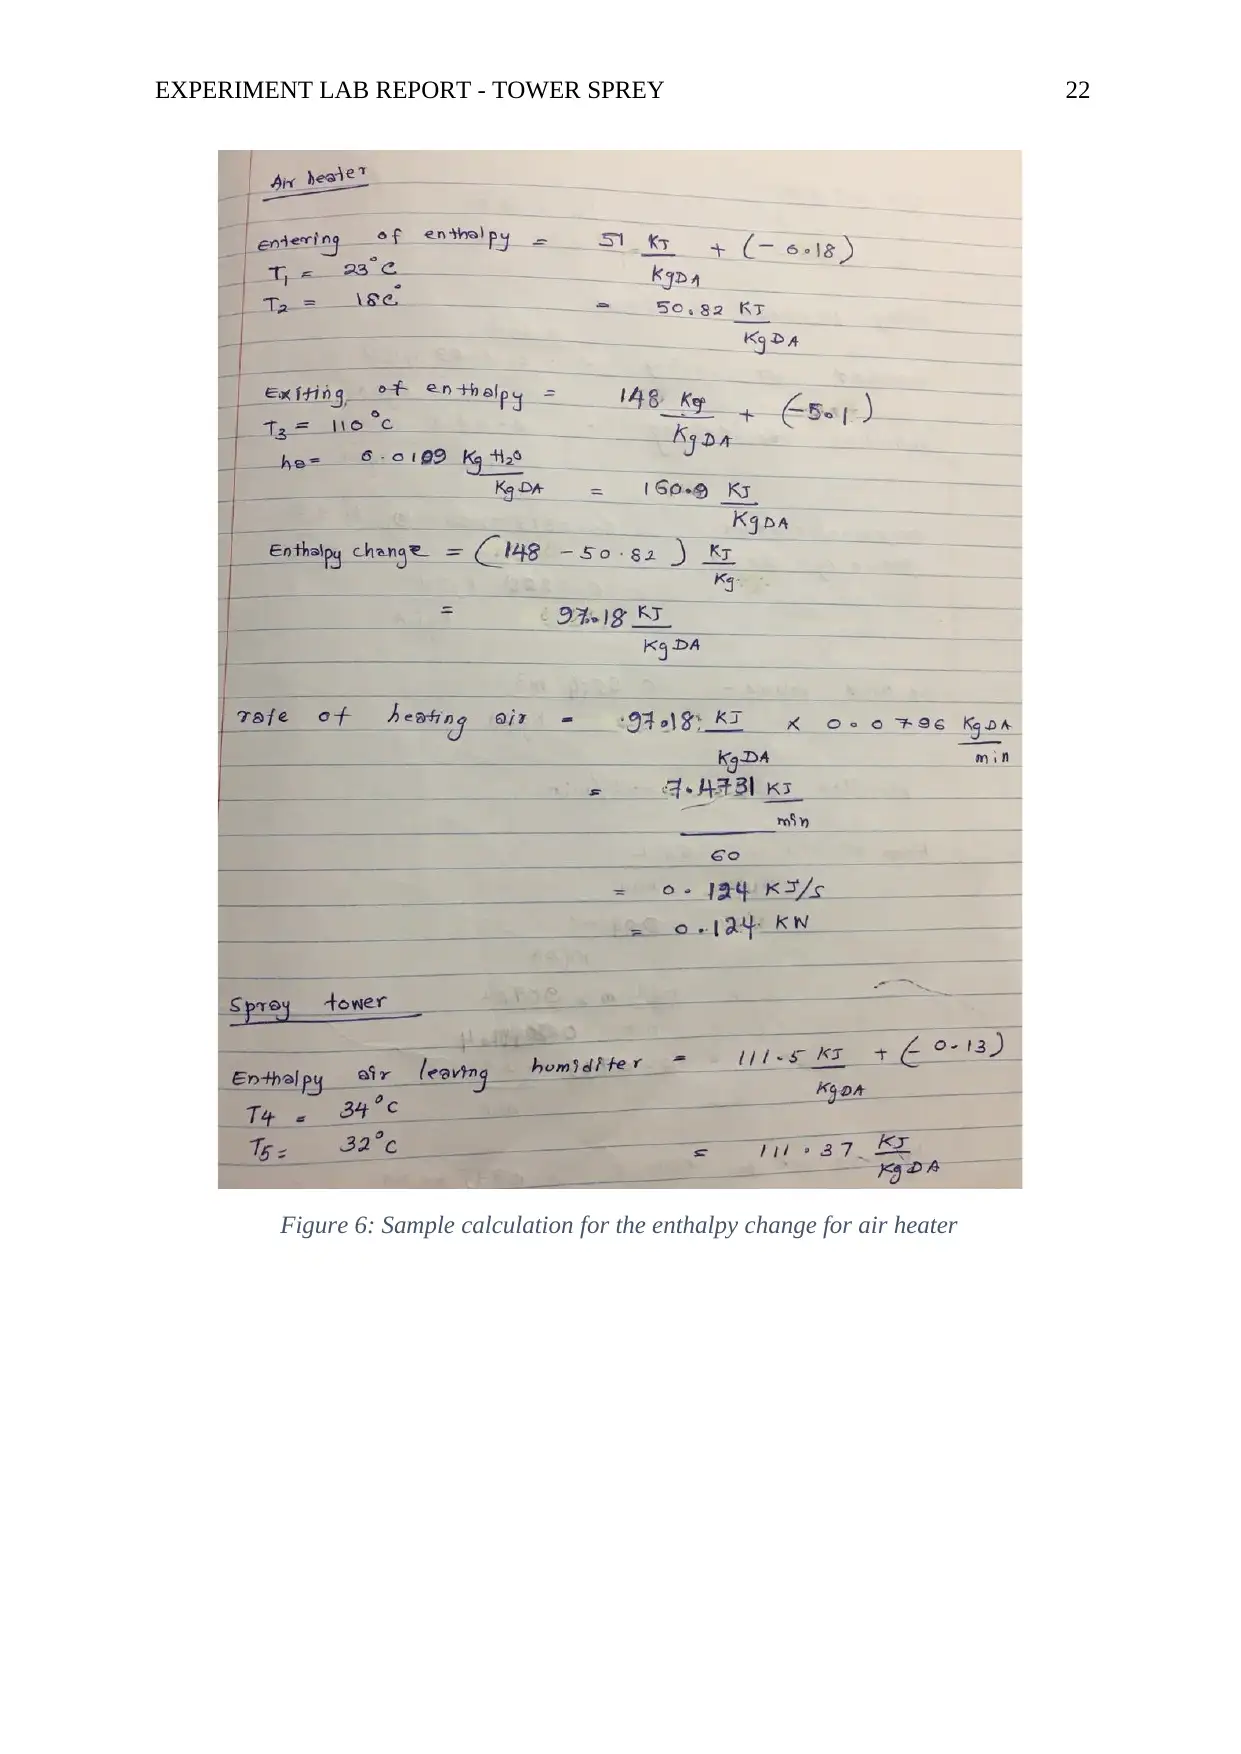 EXPERIMENT LAB REPORT - TOWER SPREY 22
Air heater
Entering of enthalpy = 51 KJ/KgDA + (- 0.18)
T1 = 23°C
T2 = 18C° = 50.82 KJ/KgDA
Exiting of enthalpy = 148 /KgDA + (-5.1)
T3 = 110°C
0.0189 Kg H2O/KgDA = 160.9 KJ/KgDA
Enthalpy change = (148 - 50.82) KJ/Kg
= 97.18 KJ/KgDA
rate of heating air = 97.18 KJ/KgDA × 0.0796 KgDA/min
= 7.4731 KJ/min
60
= 0.124 KJ/s
= 0.124 KW
Spray tower
Enthalpy air leaving humiditer = 111.5 KJ/KgDA + (- 0.13)
T4 = 34°C
T5 = 32°C = 111.37 KJ/KgDA
Figure 6: Sample calculation for the enthalpy change for air heater